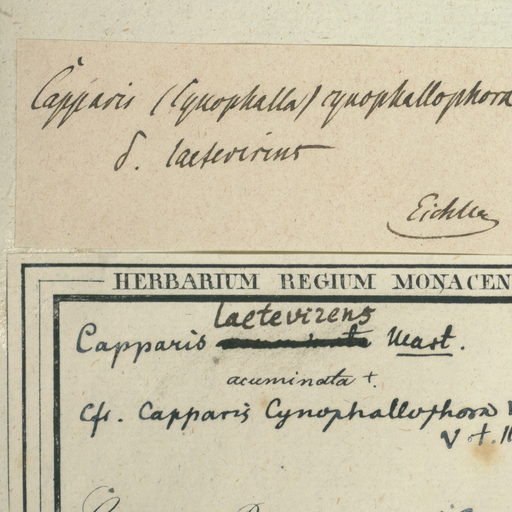 Capparis (Cynophalla) cynophallophora
δ. laetevirens
Eichler
HERBARIUM REGIUM MONACEN
laetevirens
Capparis Mart.
acuminata +.
Cfr. Capparis Cynophallophora